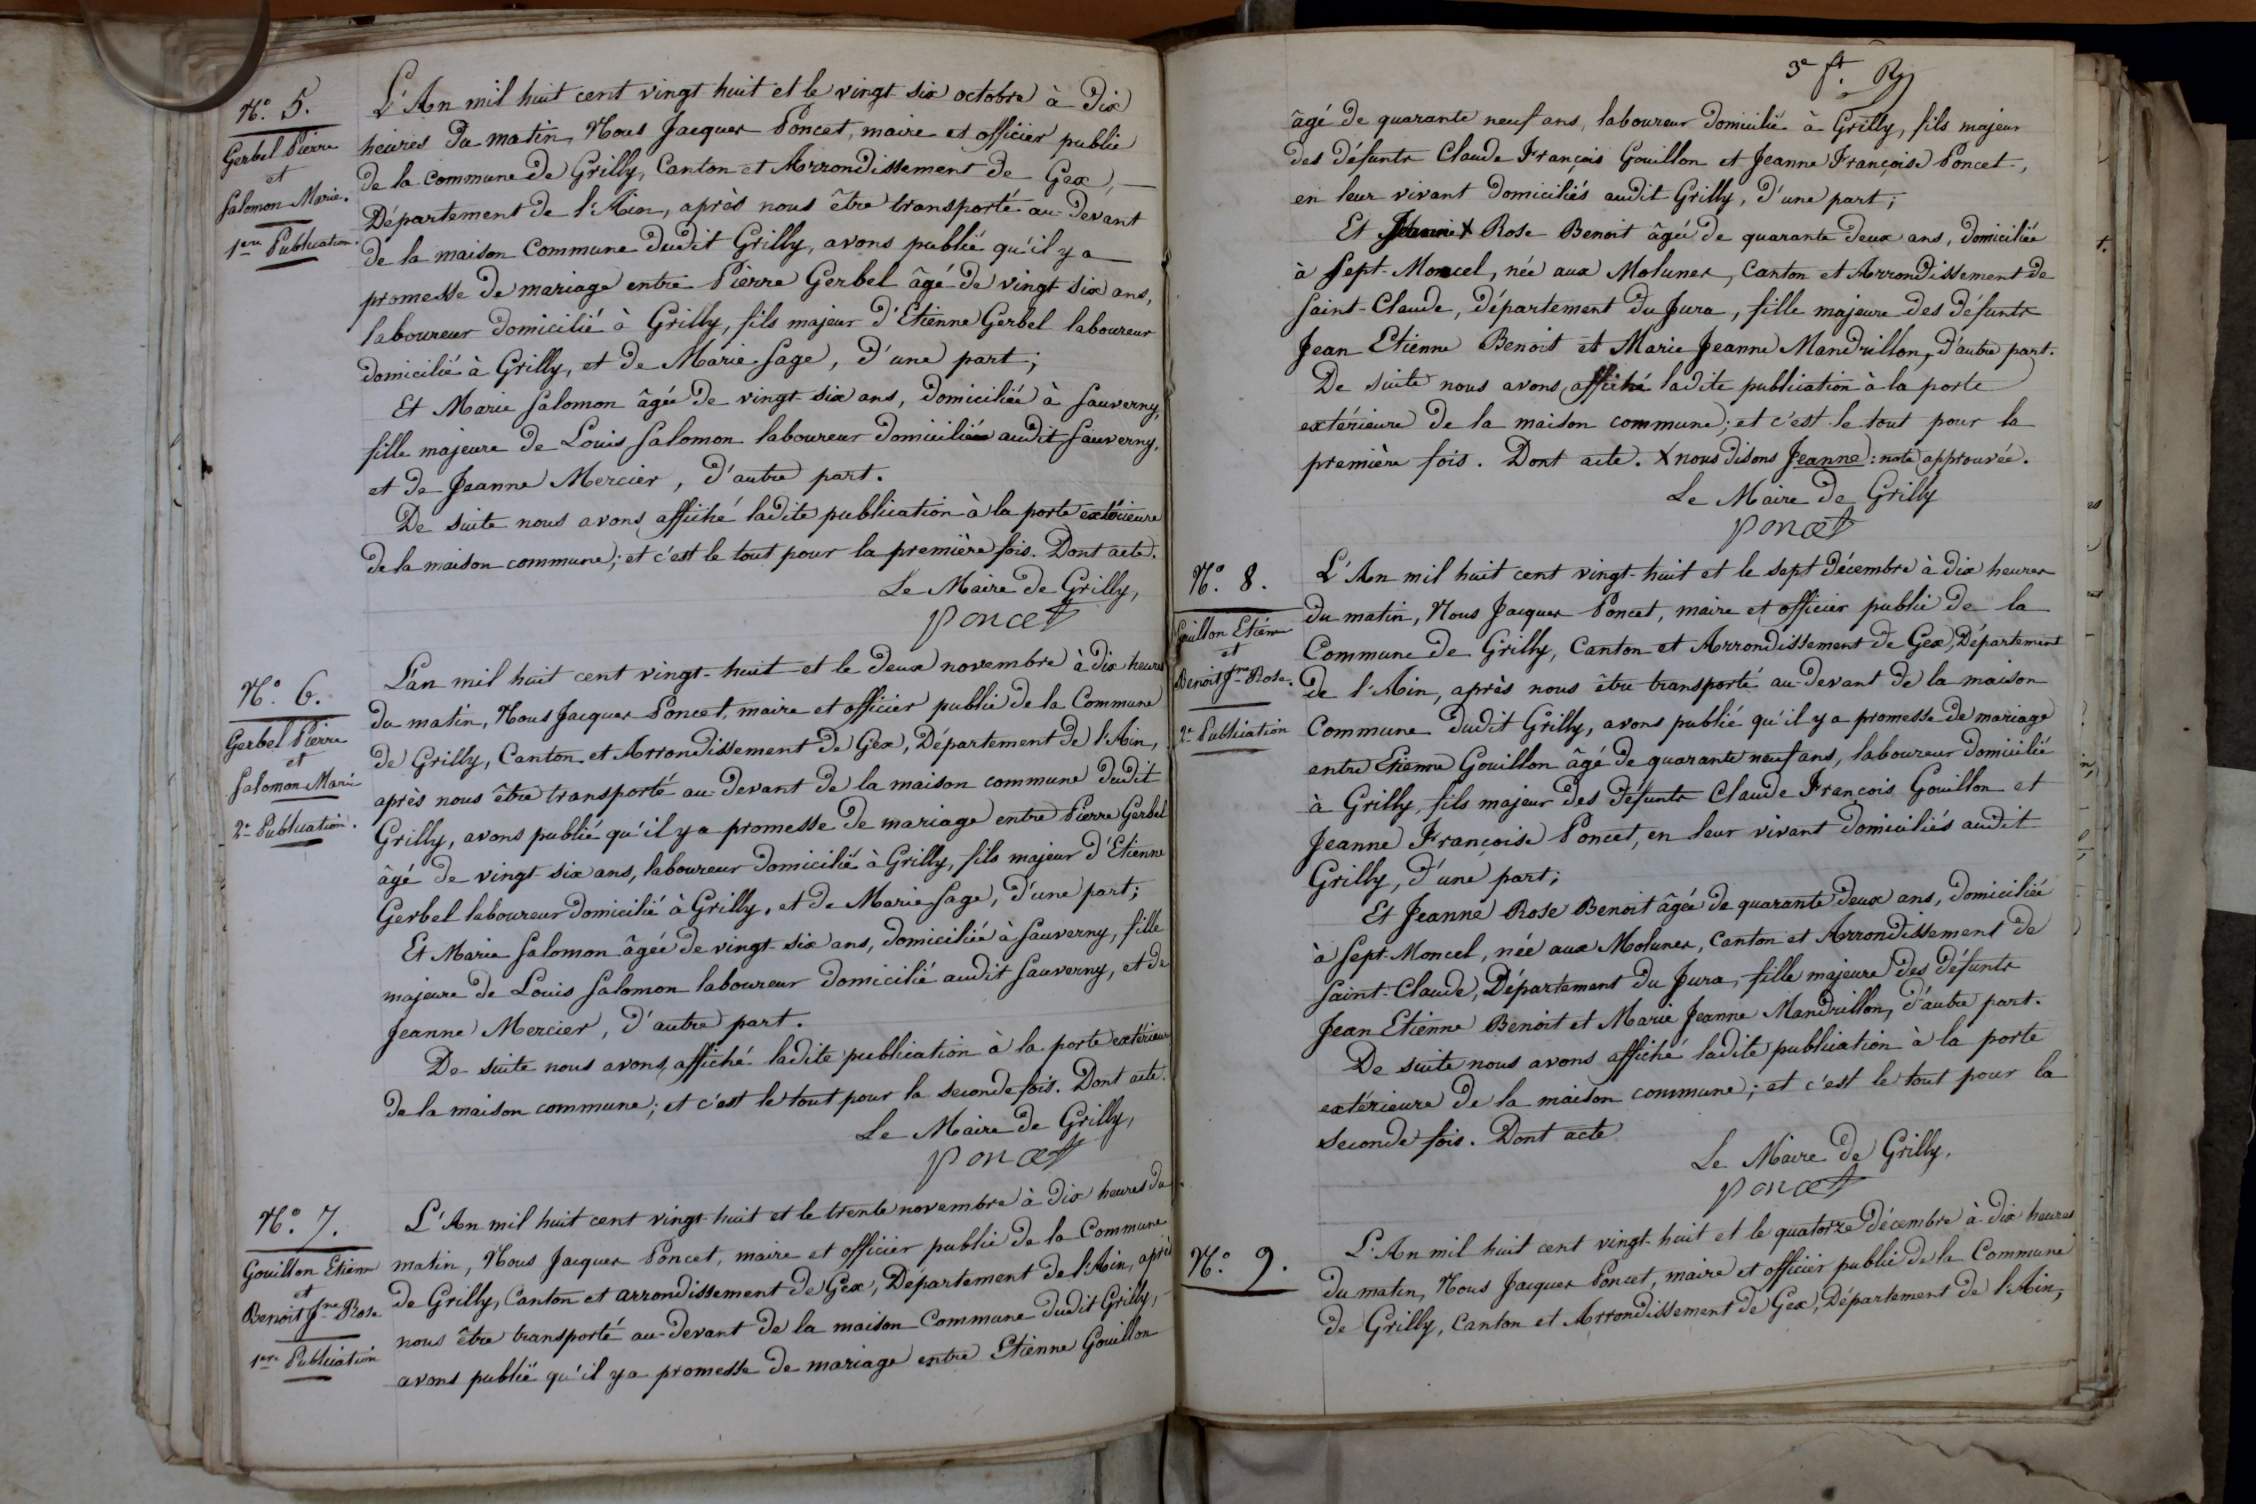 N.° 5.
Gerbel Pierre
et
Salomon Marie.
1ere Publication.
L'An mil huit cent vingt huit et le vingt six octobre à dix
heures du matin, Nous Jacques Poncet, maire et officier public
de la commune de Grilly, Canton et Arrondissement de Gex,
Département de l'Ain, après nous être transporté au-devant
de la maison Commune dudit Grilly, avons publié qu'il y a
promesse de mariage entre Pierre Gerbel âgé de vingt six ans,
laboureur domicilié à Grilly, fils majeur d'Etienne Gerbel laboureur
domicilié à Grilly, et de Marie Sage, d'une part;
Et Marie Salomon âgée de vingt six ans, domiciliée à Sauverny,
fille majeure de Louis Salomon laboureur domicilié audit Sauverny,
et de Jeanne Mercier, d'autre part.
De suite nous avons affiché ladite publication à la porte extérieure
de la maison commune; et c'est le tout pour la première fois. Dont acte.
Le Maire de Grilly,
Poncet
N.° 6.
Gerbel Pierre
et
Salomon Marie
2e Publication.
L'an mil huit cent vingt-huit et le deux novembre à dix heures
du matin, Nous Jacques Poncet, maire et officier public de la Commune
de Grilly, Canton et Arrondissement de Gex, Département de l'Ain,
après nous être transporté au-devant de la maison commune dudit
Grilly, avons publié qu'il y a promesse de mariage entre Pierre Gerbel
âgé de vingt six ans, laboureur domicilié à Grilly, fils majeur d'Etienne
Gerbel laboureur domicilié à Grilly, et de Marie Sage, d'une part;
Et Marie Salomon âgée de vingt-six ans, domiciliée à Sauverny, fille
majeure de Louis Salomon laboureur domicilié audit Sauverny, et de
Jeanne Mercier, d'autre part.
De suite nous avons affiché ladite publication à la porte extérieure
de la maison commune; et c'est le tout pour la seconde fois. Dont acte.
Le Maire de Grilly,
Poncet
N.° 7.
Gouillon Etienne
et
Benoit Jne Rose
1ere Publication
L'An mil huit cent vingt-huit et le trente novembre à dix heures du
matin, Nous Jacques Poncet, maire et officier public de la Commune
de Grilly, Canton et arrondissement de Gex, Département de l'Ain, après
nous être transporté au-devant de la maison Commune dudit Grilly,
avons publié qu'il y a promesse de mariage entre Etienne Gouillon
3e ft.
âgé de quarante neuf ans, laboureur domicilié à Grilly, fils majeur
des défunts Claude François Gouillon et Jeanne Françoise Poncet,
en leur vivant domiciliés audit Grilly, d'une part;
Et Jeanne X Rose Benoit âgée de quarante deux ans, domiciliée
à Sept-Moncel, née aux Molunes, Canton et Arrondissement de
Saint-Claude, département du Jura, fille majeure des défunts
Jean Etienne Benoit et Marie Jeanne Mandrillon, d'autre part.
De suite nous avons affiché ladite publication à la porte
extérieure de la maison commune; et c'est le tout pour la
première fois. Dont acte. X nous disons Jeanne: note approuvée.
Le Maire de Grilly
Poncet
N.° 8.
Gouillon Etienne
et
Benoit Jne Rose.
2e Publication
L'An mil huit cent vingt-huit et le sept décembre à dix heures
du matin, Nous Jacques Poncet, maire et officier public de la
Commune de Grilly, Canton et Arrondissement de Gex, Département
de l'Ain, après nous être transporté au-devant de la maison
Commune dudit Grilly, avons publié qu'il y a promesse de mariage
entre Etienne Gouillon âgé de quarante neuf ans, laboureur domicilié
à Grilly, fils majeur des défunts Claude François Gouillon et
Jeanne Françoise Poncet, en leur vivant domiciliés audit
Grilly, d'une part;
Et Jeanne Rose Benoit âgée de quarante deux ans, domiciliée
à Sept-Moncel, née aux Molunes, Canton et Arrondissement de
Saint-Claude, Département du Jura, fille majeure des défunts
Jean Etienne Benoit et Marie Jeanne Mandrillon, d'autre part.
De suite nous avons affiché ladite publication à la porte
extérieure de la maison commune; et c'est le tout pour la
seconde fois. Dont acte
Le Maire de Grilly.
Poncet
N.° 9.
L'An mil huit cent vingt-huit et le quatorze décembre à dix heures
du matin, Nous Jacques Poncet, maire et officier public de la Commune
de Grilly, Canton et Arrondissement de Gex, Département de l'Ain,